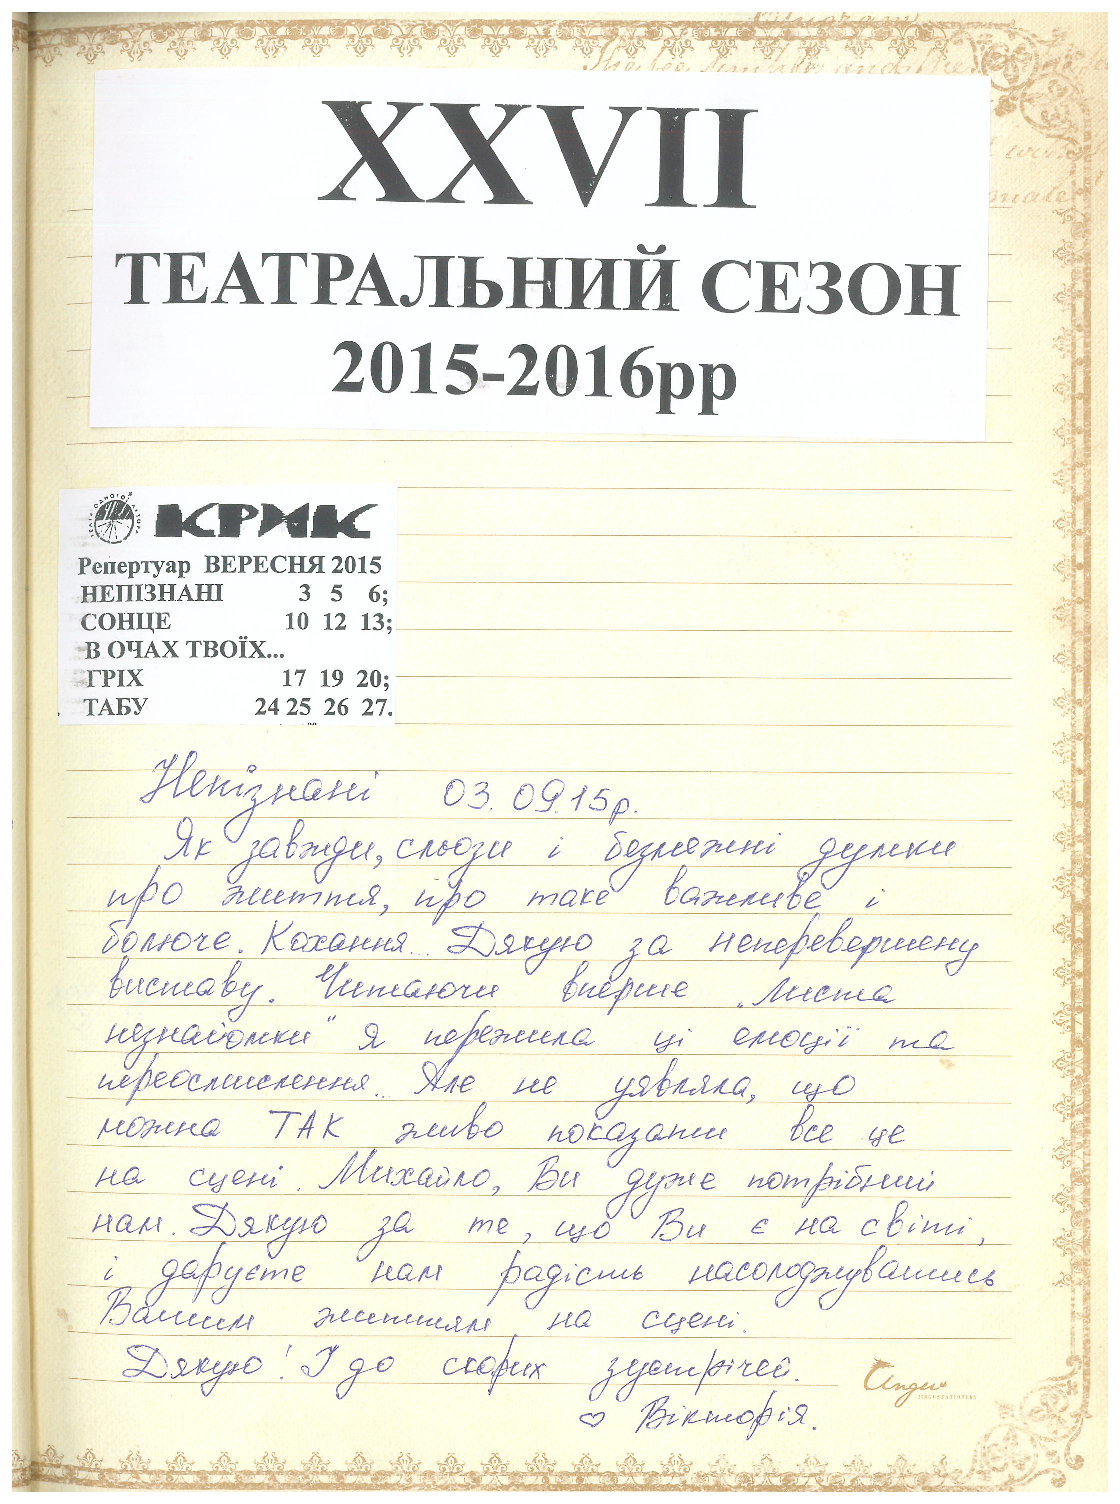 XXVII
ТЕАТРАЛЬНИЙ СЕЗОН
2015-2016рр
КРИК
Репертуар ВЕРЕСНЯ 2015
НЕПІЗНАНІ 3 5 6;
СОНЦЕ 10 12 13;
В ОЧАХ ТВОЇХ...
ГРІХ 17 19 20;
ТАБУ 24 25 26 27.
Непізнані 03.09.15р.
Як завжди, сльози і безмежні думки
про життя, про таке важливе і
болюче. Кохання... Дякую за неперевершену
виставу. Читаючи вперше „Листа
незнайомки" я пережила ці емоції та
переосмислення... Але не уявляла, що
можна ТАК живо показати все це
на сцені. Михайло, Ви дуже потрібний
нам. Дякую за те, що Ви є на світі,
і даруєте нам радість насолоджуватись
Вашим життям на сцені.
Дякую! І до скорих зустрічей.
♡ Вікторія.